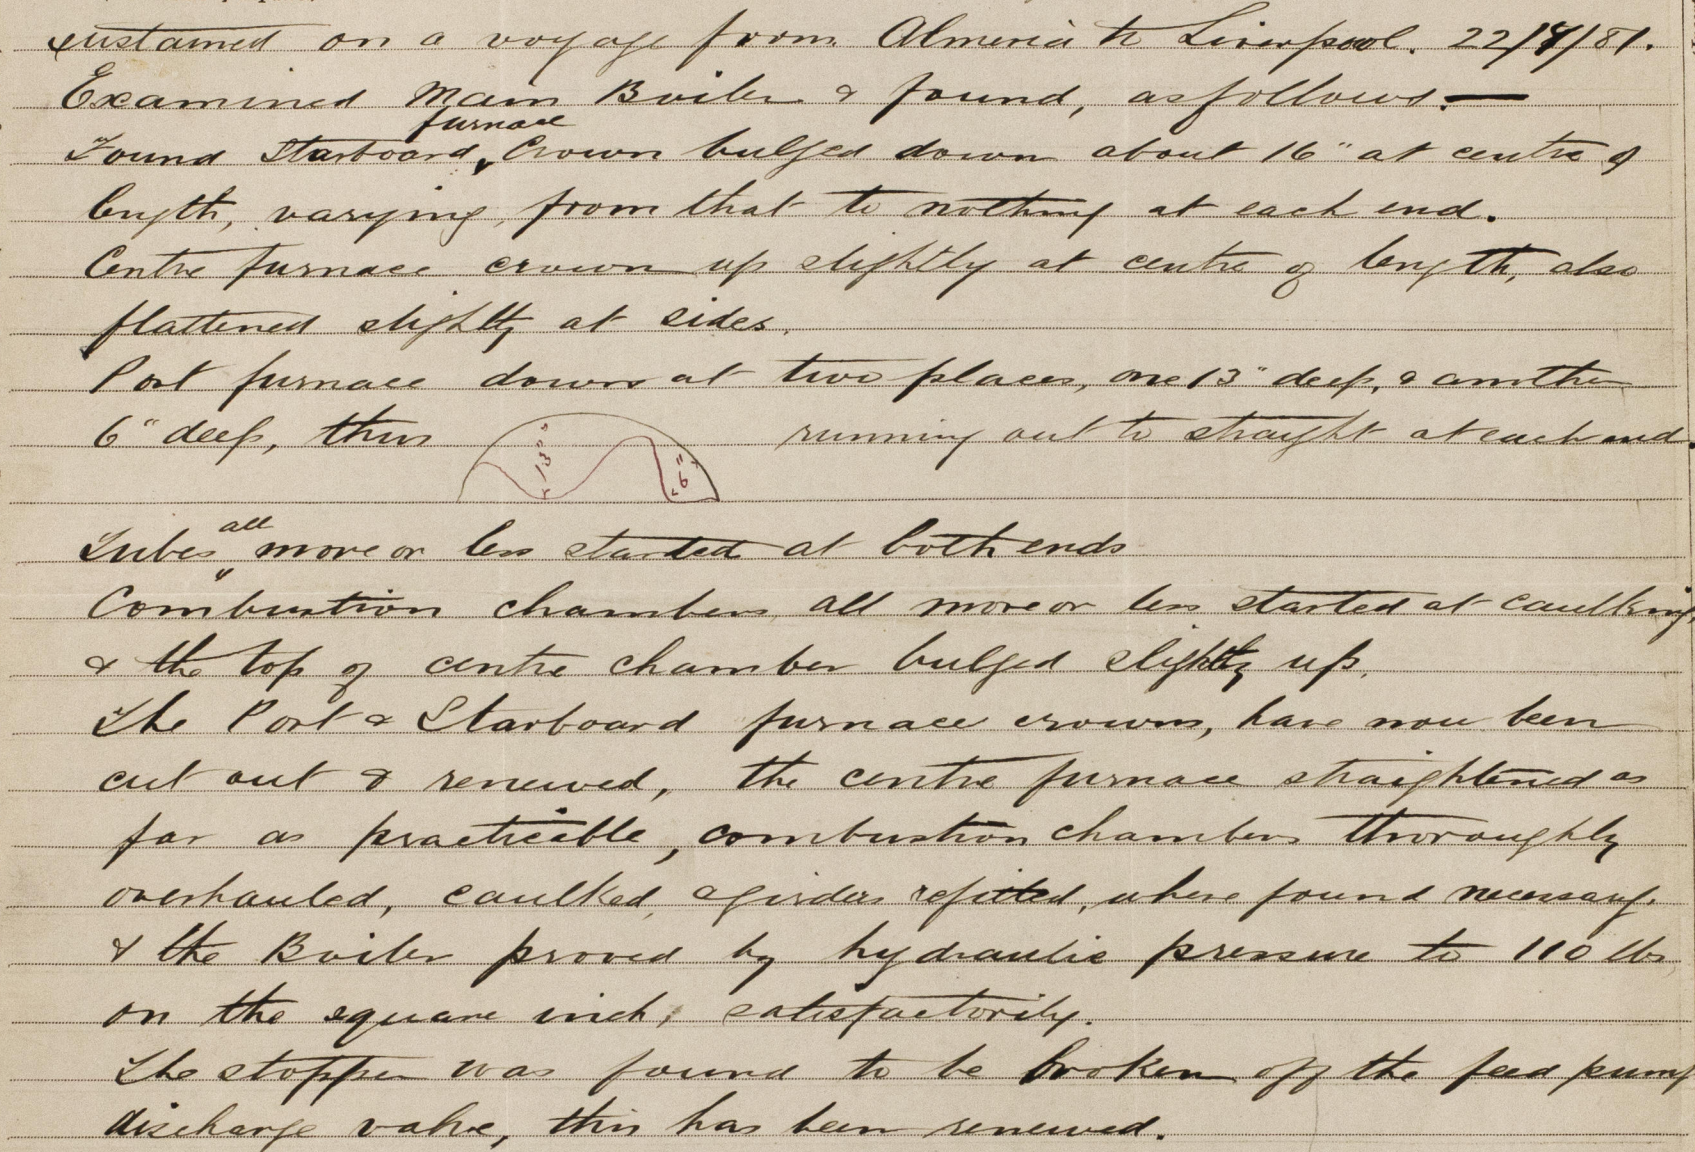 sustained on a voyage from Almeria to Liverpool. 22/9/81.
Examined Main Boiler & found, as follows.—
furnace
Found Starboard Crown bulged down about 16" at centre of
length, varying from that to nothing at each end.
Centre furnace crown up slightly at centre of length, also
flattened slightly at sides.
Port furnace down at two places, one 13" deep, & another
6" deep, thus running out to straight at each end.
13" 6"
all
Tubes more or less started at both ends
Combustion chambers all more or less started at caulking,
& the top of centre chamber bulged slightly up.
The Port & Starboard furnace crowns, have now been
cut out & renewed, the centre furnace straightened as
far as practicable, combustion chambers thoroughly
overhauled, caulked, & girders refitted, where found necessary.
& the Boiler proved by hydraulic pressure to 110 lbs
on the square inch, satisfactorily.
The stopper was found to be broken off the feed pump
discharge valve, this has been renewed.